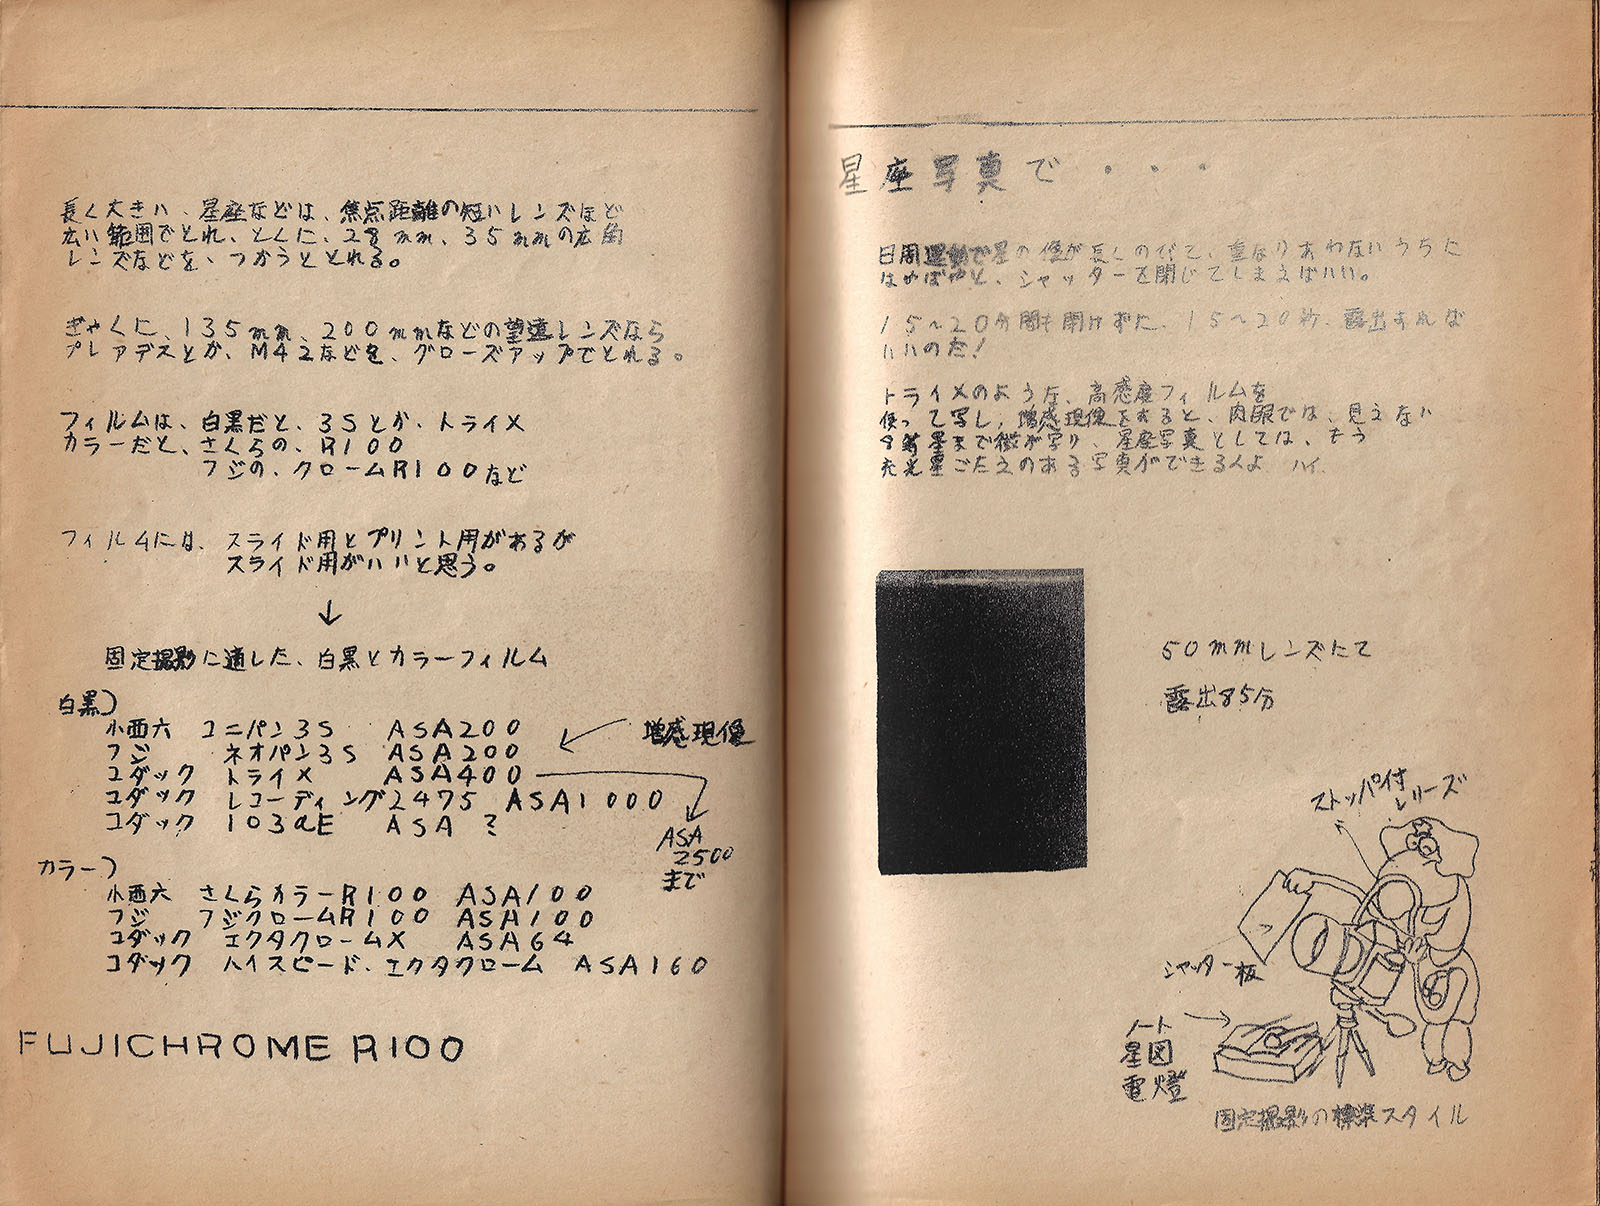 長く大きい、星座などは、焦点距離の短いレンズほど
広い範囲でとれ、とくに、28mm、35mmの広角
レンズなどを、つかうととれる。
ぎゃくに、135mm、200mmなどの望遠レンズなら
プレアデスとか、M42などを、グローズアップでとれる。
フィルムは、白黒だと、3Sとか、トライX
カラーだと、さくらの、R100
フジの、クロームR100など
フィルムには、スライド用とプリント用があるが
スライド用がいいと思う。
↓
固定撮影に適した、白黒とカラーフィルム
白黒)
小西六 コニパン3S ASA200
フジ ネオパン3S ASA200
コダック トライX ASA400
コダック レコーディング2475 ASA1000
コダック 103aE ASA ?
増感現像
ASA
2500
まで
カラー)
小西六 さくらカラーR100 ASA100
フジ フジクロームR100 ASA100
コダック エクタクロームX ASA64
コダック ハイスピード、エクタクローム ASA160
FUJICHROME R100
星座写真で・・・
日周運動で星の像が長くのびて、重なりあわないうちに
はやばやと、シャッターを閉じてしまえばいい。
15~20分間も開けずに、15~20秒、露出すれば
いいのだ!
トライXのような、高感度フィルムを
使って写し、増感現像をすると、肉眼では、見えない
8等星まで像が写り、星座写真としては、そう
充光星ごたえのある写真ができるんよ ハイ.
50mmレンズにて
露出85分
ストッパ付
レリーズ
シャッター板
ノート
星図
電燈
固定撮影の標準スタイル